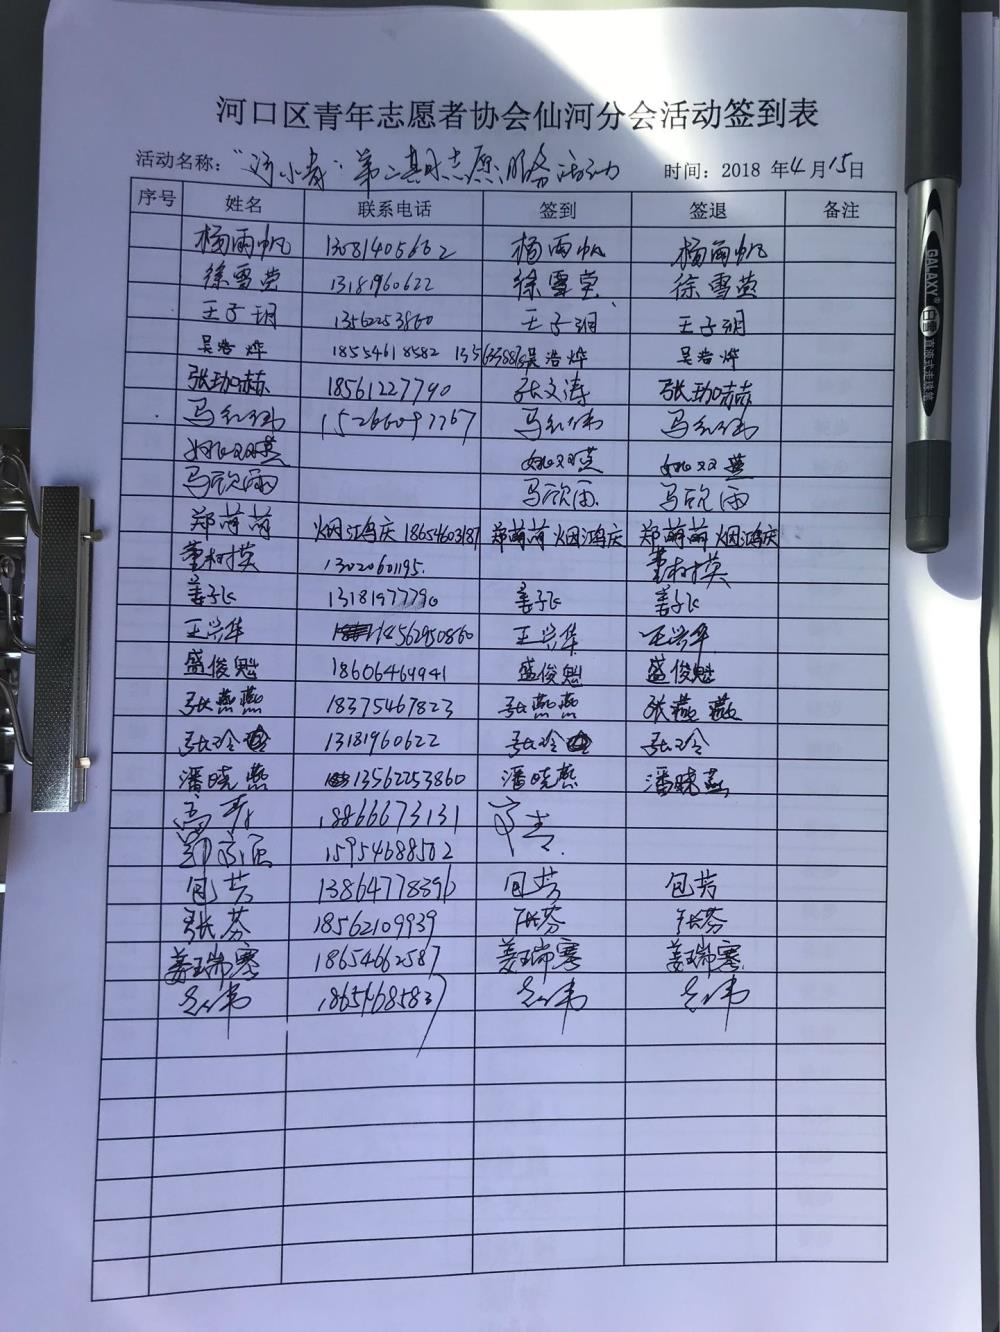 河口区青年志愿者协会仙河分会活动签到表
活动名称：“河小青”第二期 志愿服务活动 时间：2018 年4月15日
序号 姓名 联系电话 签到 签退 备注
杨雨帆 13081405662 杨雨帆 杨雨帆
徐雪莹 13181960622 徐雪莹 徐雪莹
王子玥 13562253860 王子玥 王子玥
吴浩烨 18554618582 吴浩烨 吴浩烨
张珈赫 18561227790 张文涛 张珈赫
马红伟 马红伟 马红伟
马欣雨 马欣雨 马欣雨
郑萌萌 烟鸿庆 18654603187 郑萌萌 烟鸿庆 郑萌萌 烟鸿庆
13020601195.
姜子飞 13181977790 姜子飞 姜子飞
王兴华 18562950860 王兴华 王兴华
盛俊魁 18606464941 盛俊魁 盛俊魁
张燕燕 18375467823 张燕燕 张燕燕
张玲 13181960622 张玲 张玲
潘晓燕 13562253860 潘晓燕 潘晓燕
18866673131
15954688502
包芳 13864778396 包芳 包芳
张芬 18562109939 张芬 张芬
姜瑞寒 18654662587 姜瑞寒 姜瑞寒
GALAXY® 白雪 直液式走珠笔